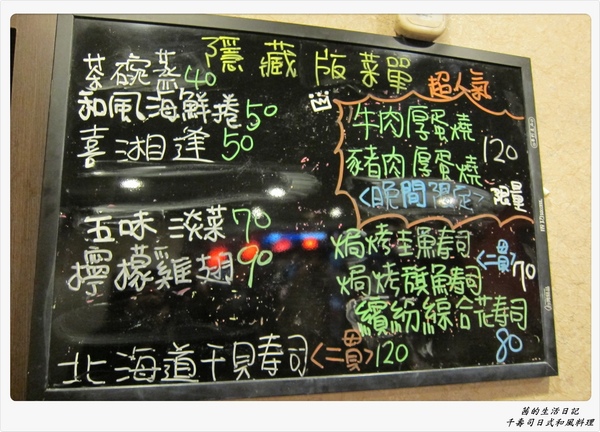 隱藏版菜單
茶碗蒸40
和風海鮮捲50
喜湘逢50
五味淡菜70
檸檬雞翅90
北海道干貝寿司<二貫>120
超人氣
牛肉厚蛋燒
豬肉厚蛋燒
120
<晚間限定>
限量
焗烤鮭魚寿司
焗烤旗魚寿司
<二貫>
70
繽紛綜合花寿司
80
茜的生活日記
千壽司日式和風料理